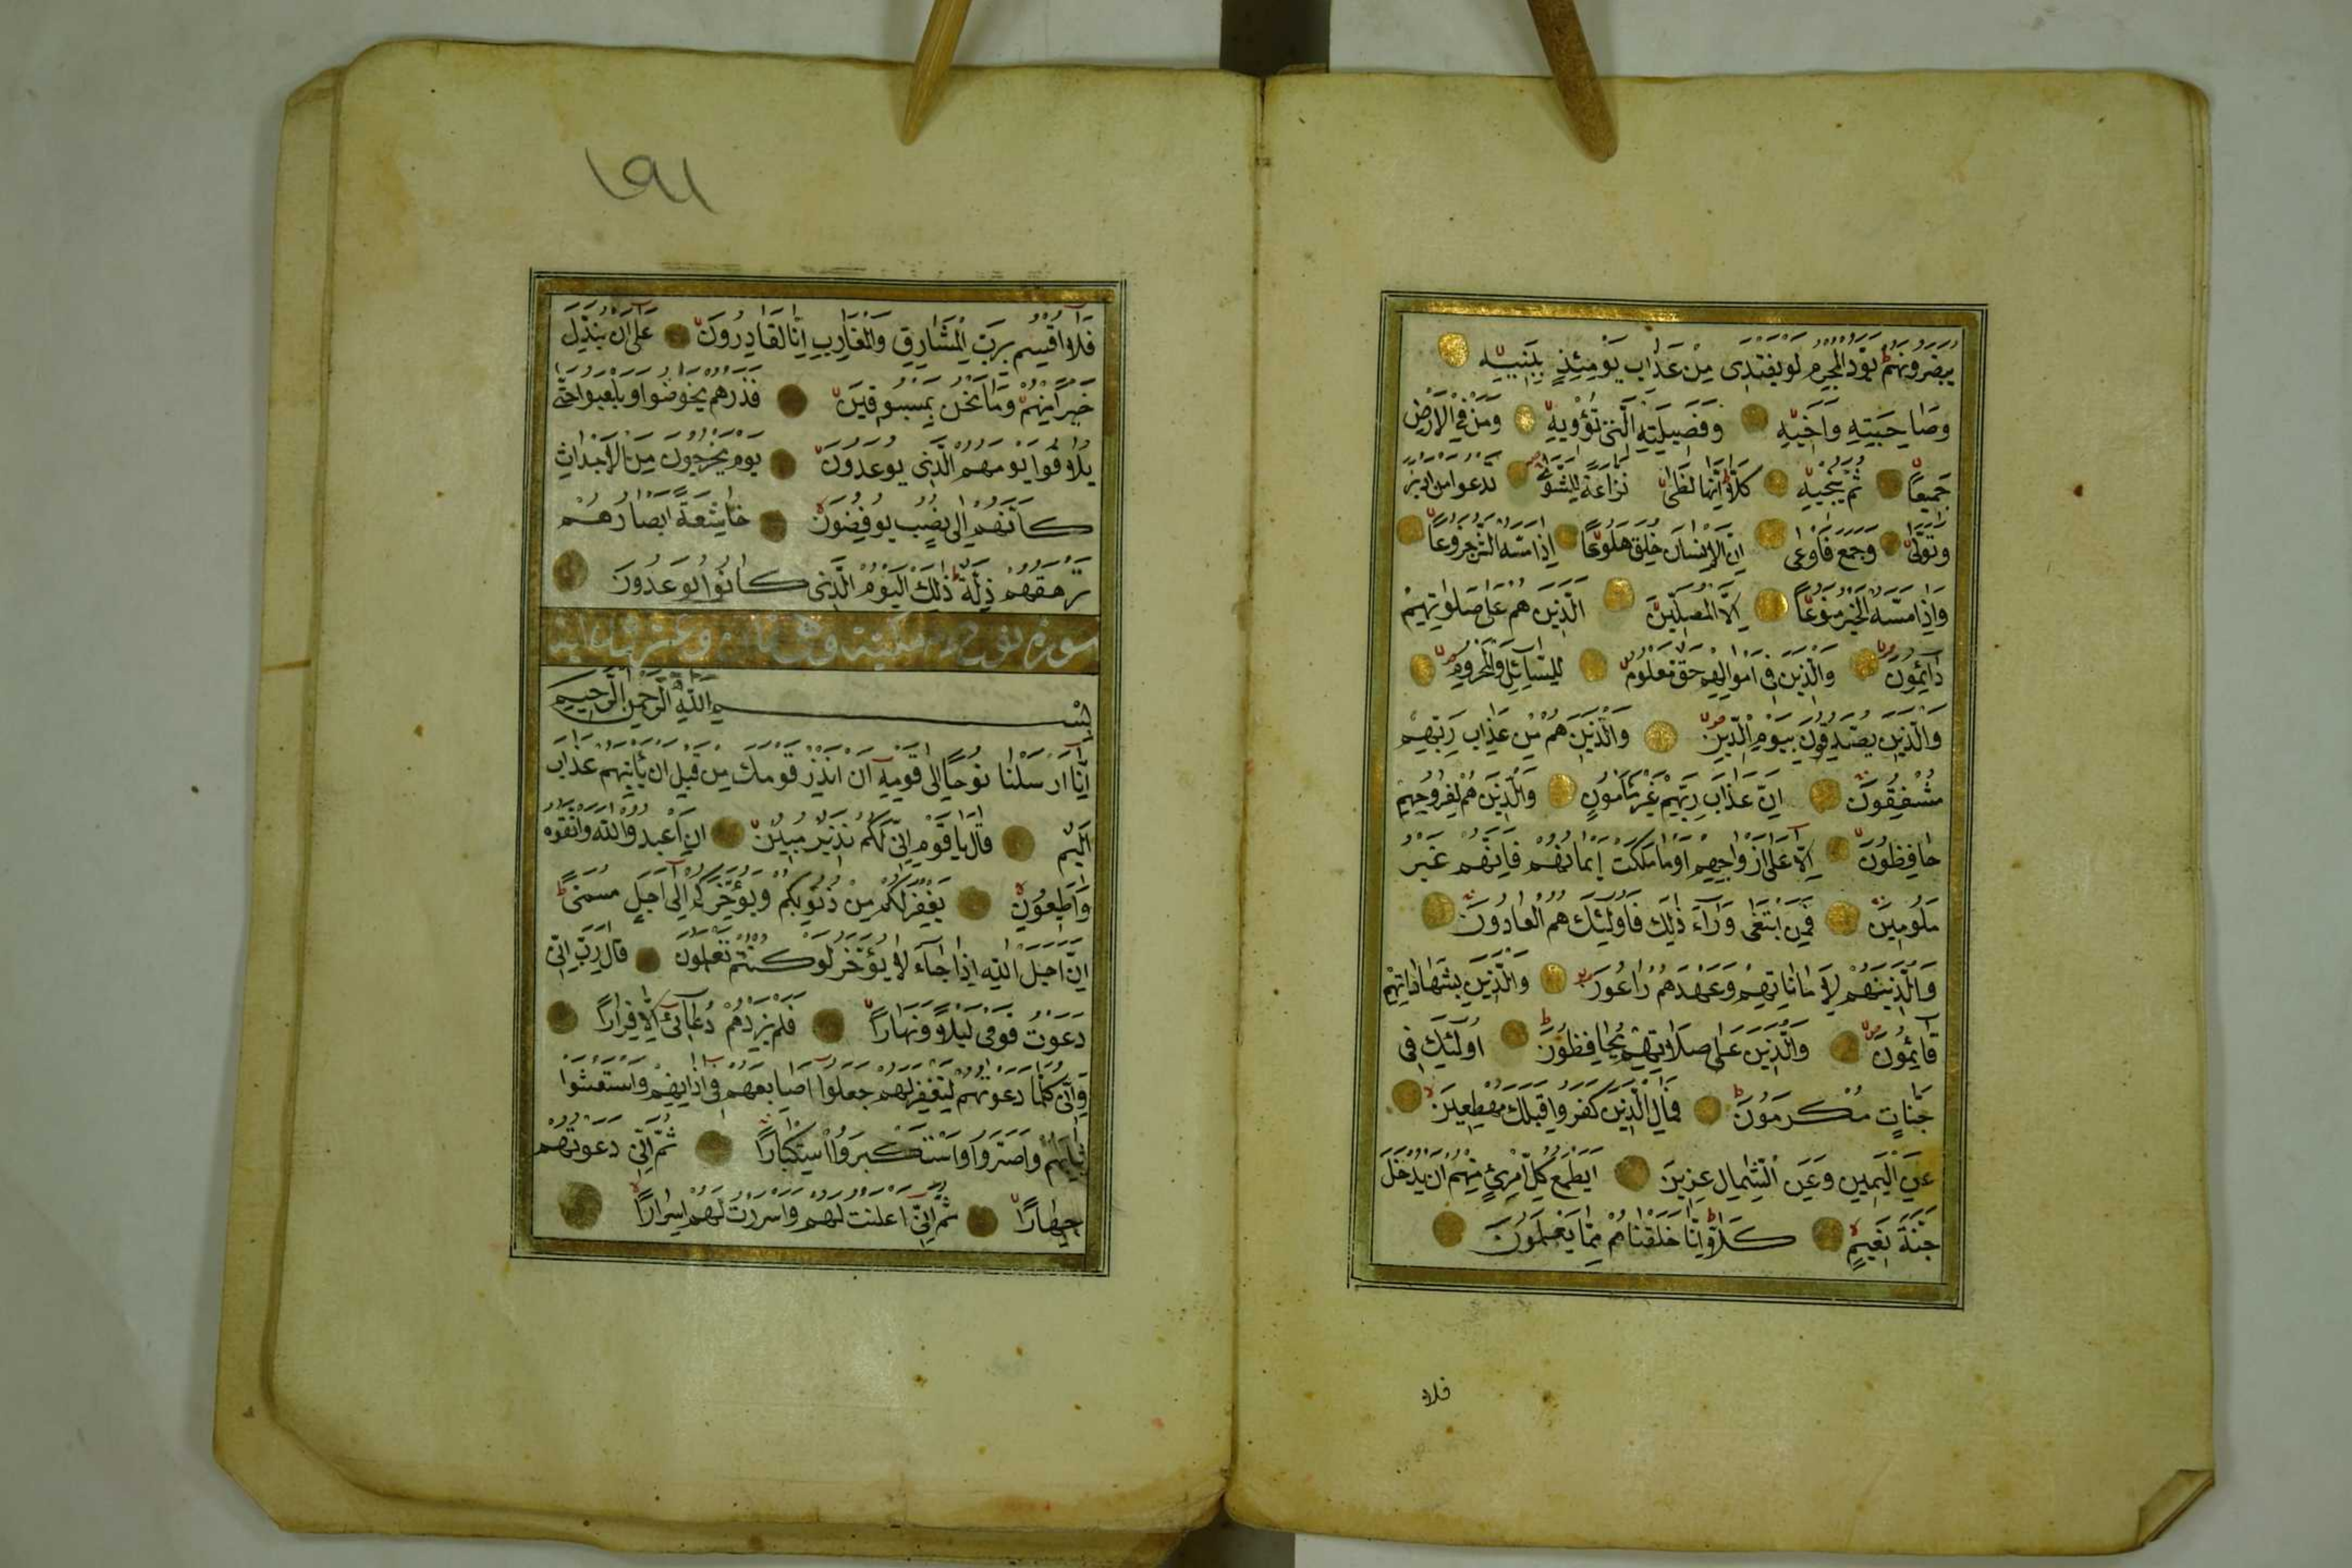 يبصرونهم يود المجرم لو يفتدى من عذاب يومئذ ببنيه
وصاحبته واخيه وفصيلته التى تؤويه ومن فى الارض
جميعا ثم ينجيه كلا انها لظى نزاعة للشوى تدعوا من ادبر
وتولى وجمع فاوعى ان الانسان خلق هلوعا اذا مسه الشر جزوعا
واذا مسه الخير منوعا الا المصلين الذين هم على صلواتهم
دائمون والذين فى اموالهم حق معلوم للسائل والمحروم
والذين يصدقون بيوم الدين والذين هم من عذاب ربهم
مشفقون ان عذاب ربهم غير مأمون والذين هم لفروجهم
حافظون الا على ازواجهم او ما ملكت ايمانهم فانهم غير
ملومين فمن ابتغى وراء ذلك فاولئك هم العادون
والذينهم لاماناتهم وعهدهم راعون والذين بشهاداتهم
قائمون والذين على صلاتهم يحافظون اولئك فى
جنات مكرمون فمال الذين كفروا قبلك مهطعين
عن اليمين وعن الشمال عزين ايطمع كل امرئ منهم ان يدخل
جنة نعيم كلا انا خلقناهم مما يعملون
فلا
١٩١
فلا اقسم برب المشارق والمغارب انا لقادرون على ان نبدل
خيرا منهم وما نحن بمسبوقين فذرهم يخوضوا ويلعبوا حتى
يلاقوا يومهم الذى يوعدون يوم يخرجون من الاجداث
كانهم الى نصب يوفضون خاشعة ابصارهم
ترهقهم ذلة ذلك اليوم الذى كانوا يوعدون
سورة نوح مكية وهى وعشرون اية
بسم الله الرحمن الرحيم
انا ارسلنا نوحا الى قومه ان انذر قومك من قبل ان يأتيهم عذاب
اليم قال يا قوم انى لكم نذير مبين ان اعبدوا الله واتقوه
واطيعون يغفر لكم من ذنوبكم ويؤخركم الى اجل مسمى
ان اجل الله اذا جاء لا يؤخر لو كنتم تعلمون قال رب انى
دعوت قومى ليلا ونهارا فلم يزدهم دعائى الا فرارا
وانى كلما دعوتهم لتغفر لهم جعلوا اصابعهم فى اذانهم واستغشوا
ثيابهم واصروا واستكبروا استكبارا ثم انى دعوتهم
جهارا ثم انى اعلنت لهم واسررت لهم اسرارا